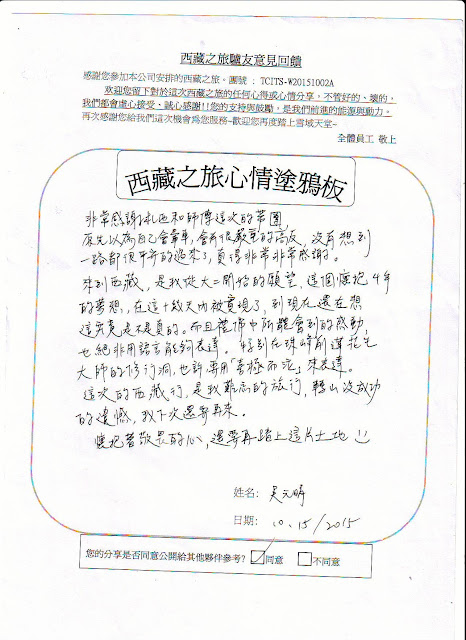 西藏之旅驢友意見回饋
感謝您參加本公司安排的西藏之旅。團號：TCITS-W20151002A
歡迎您留下對於這次西藏之旅的任何心得或心情分享，不管好的、壞的，
我們都會虛心接受、誠心感謝!!您的支持與鼓勵，是我們前進的能源與動力。
再次感謝您給我們這次機會為您服務~歡迎您再度踏上雪域天堂~
全體員工 敬上
西藏之旅心情塗鴉板
非常感謝札西和師傅這次的帶團
原先以為自己會暈車，會有很嚴重的高反，沒有想到
一路都很平安的過來了，真得非常非常感謝。
來到西藏，是我從大二開始的願望，這個懷抱4年
的夢想，在這十幾天內被實現了，到現在還在想
這究竟是不是真的。而且禮佛中所體會到的感動，
也絕非用語言能夠表達。特別在珠峰前蓮花生
大師的修行洞，也許要用「喜極而泣」來表達。
這次的西藏行，是我難忘的旅行，轉山沒成功
的遺憾，我下次還要再來。
懷抱著敬畏的心，還要再踏上這片土地
姓名：吳元晴
日期：10.15/2015
您的分享是否同意公開給其他夥伴參考? 同意 不同意